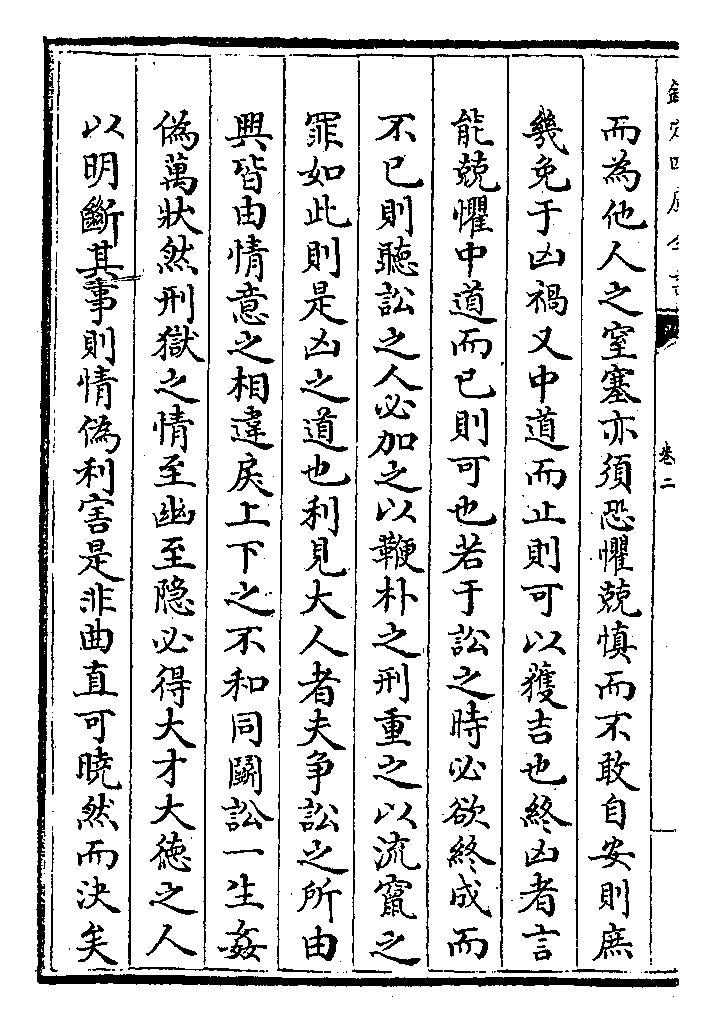 欽定四庫全書
卷二
而為他人之窒塞亦須恐懼兢慎而不敢自安則庶
幾免于凶禍又中道而止則可以獲吉也終凶者言
能兢懼中道而已則可也若于訟之時必欲終成而
不已則聽訟之人必加之以鞭朴之刑重之以流竄之
罪如此則是凶之道也利見大人者夫爭訟之所由
興皆由情意之相違戾上下之不和同鬬訟一生姦
偽萬狀然刑獄之情至幽至隐必得大才大徳之人
以明斷其事則情偽利害是非曲直可曉然而決矣